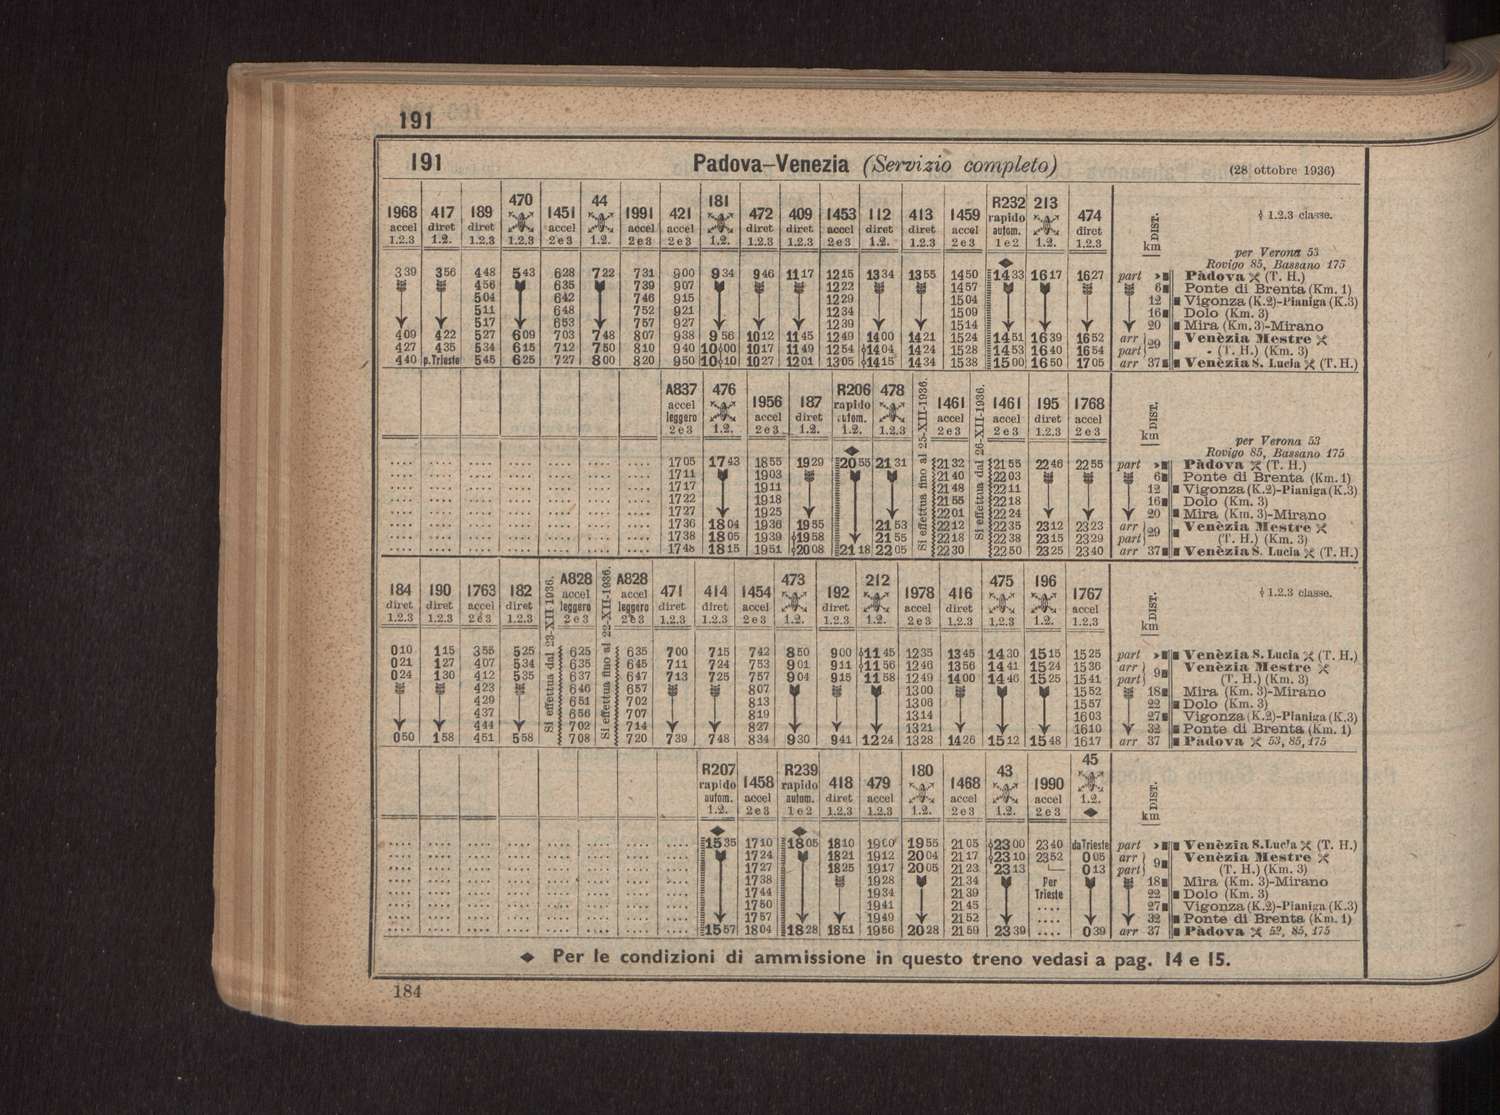 191
191 Padova–Venezia (Servizio completo) (28 ottobre 1936)
1968 417 189 470 1451 44 1991 421 181 472 409 1453 112 413 1459 R232 213 474
accel diret diret accel accel accel diret diret accel diret diret accel rapido autom. diret
1.2.3 1.2. 1.2.3 1.2.3 2 e 3 1.2. 2 e 3 2 e 3 1.2. 1.2.3 1.2.3 2 e 3 1.2. 1.2.3 2 e 3 1 e 2 1.2. 1.2.3
km DIST.
1.2.3 classe.
per Verona 53
Rovigo 85, Bassano 175
3 39 3 56 4 48 5 43 6 28 7 22 7 31 9 00 9 34 9 46 11 17 12 15 13 34 13 55 14 50 14 33 16 17 16 27 part Pàdova (T. H.)
4 56 6 35 7 39 9 07 12 22 14 57 6 Ponte di Brenta (Km. 1)
5 04 6 42 7 46 9 15 12 29 15 04 12 Vigonza (K.2)-Pianiga (K.3)
5 11 6 48 7 52 9 21 12 34 15 09 16 Dolo (Km. 3)
5 17 6 53 7 57 9 27 12 39 15 14 20 Mira (Km. 3)-Mirano
4 09 4 22 5 27 6 09 7 03 7 48 8 07 9 38 9 56 10 12 11 45 12 49 14 00 14 21 15 24 14 51 16 39 16 52 arr 29 Venèzia Mestre
4 27 4 35 5 34 6 15 7 12 7 50 8 10 9 40 10 00 10 17 11 49 12 54 14 04 14 24 15 28 14 53 16 40 16 54 part - (T. H.) (Km. 3)
4 40 p. Trieste 5 45 6 25 7 27 8 00 8 20 9 50 10 10 10 27 12 01 13 05 14 15 14 34 15 38 15 00 16 50 17 05 arr 37 Venèzia S. Lucia (T. H.)
A837 476 1956 187 R206 478 Si effettua fino al 25-XII-1936. 1461 Si effettua dal 26-XII-1936. 1461 195 1768
accel leggero accel diret rapido autom. accel accel diret accel
2 e 3 1.2. 2 e 3 1.2. 1.2. 1.2.3 2 e 3 2 e 3 1.2.3 2 e 3
km DIST.
per Verona 53
Rovigo 85, Bassano 175
.... .... .... .... .... .... .... 17 05 17 43 18 55 19 29 20 55 21 31 21 32 21 55 22 46 22 55 part Pàdova (T. H.)
.... .... .... .... .... .... .... 17 11 19 03 21 40 22 03 6 Ponte di Brenta (Km. 1)
.... .... .... .... .... .... .... 17 17 19 11 21 48 22 11 12 Vigonza (K.2)-Pianiga (K.3)
.... .... .... .... .... .... .... 17 22 19 18 21 55 22 18 16 Dolo (Km. 3)
.... .... .... .... .... .... .... 17 27 19 25 22 01 22 24 20 Mira (Km. 3)-Mirano
.... .... .... .... .... .... .... 17 36 18 04 19 36 19 55 21 53 22 12 22 35 23 12 23 23 arr 29 Venèzia Mestre
.... .... .... .... .... .... .... 17 38 18 05 19 39 19 58 21 55 22 18 22 38 23 15 23 29 part (T. H.) (Km. 3)
.... .... .... .... .... .... .... 17 48 18 15 19 51 20 08 21 18 22 05 22 30 22 50 23 25 23 40 arr 37 Venèzia S. Lucia (T. H.)
184 190 1763 182 Si effettua dal 23-XII-1936. A828 Si effettua fino al 22-XII-1936. A828 471 414 1454 473 192 212 1978 416 475 196 1767
diret diret accel diret accel leggero accel leggero diret diret accel diret accel diret accel
1.2.3 1.2.3 2 e 3 1.2.3 2 e 3 2 e 3 1.2.3 1.2.3 2 e 3 1.2. 1.2.3 1.2. 2 e 3 1.2.3 1.2.3 1.2. 1.2.3
km DIST.
1.2.3 classe.
0 10 1 15 3 55 5 25 6 25 6 35 7 00 7 15 7 42 8 50 9 00 11 45 12 35 13 45 14 30 15 15 15 25 part Venèzia S. Lucia (T. H.)
0 21 1 27 4 07 5 34 6 35 6 45 7 11 7 24 7 53 9 01 9 11 11 56 12 46 13 56 14 41 15 24 15 36 arr 9 Venèzia Mestre
0 24 1 30 4 12 5 35 6 37 6 47 7 13 7 25 7 57 9 04 9 15 11 58 12 49 14 00 14 46 15 25 15 41 part (T. H.) (Km. 3)
4 23 6 46 6 57 8 07 13 00 15 52 18 Mira (Km. 3)-Mirano
4 29 6 51 7 02 8 13 13 06 15 57 22 Dolo (Km. 3)
4 37 6 56 7 07 8 19 13 14 16 03 27 Vigonza (K.2)-Pianiga (K.3)
4 44 7 02 7 14 8 27 13 21 16 10 32 Ponte di Brenta (Km. 1)
0 50 1 58 4 51 5 58 7 08 7 20 7 39 7 48 8 34 9 30 9 41 12 24 13 28 14 26 15 12 15 48 16 17 arr 37 Pàdova 53, 85, 175
R207 1458 R239 418 479 180 1468 43 1990 45
rapido autom. accel rapido autom. diret accel accel accel
1.2. 2 e 3 1 e 2 1.2.3 1.2.3 1.2. 2 e 3 1.2. 2 e 3 1.2.
km DIST.
.... .... .... .... .... .... .... .... 15 35 17 10 18 05 18 10 19 00 19 55 21 05 23 00 23 40 da Trieste part Venèzia S. Lucia (T. H.)
.... .... .... .... .... .... .... .... 17 24 18 21 19 12 20 04 21 17 23 10 23 52 0 05 arr 9 Venèzia Mestre
.... .... .... .... .... .... .... .... 17 27 18 25 19 17 20 05 21 23 23 13 — 0 13 part (T. H.) (Km. 3)
.... .... .... .... .... .... .... .... 17 38 19 28 21 34 Per 18 Mira (Km. 3)-Mirano
.... .... .... .... .... .... .... .... 17 44 19 34 21 39 Trieste 22 Dolo (Km. 3)
.... .... .... .... .... .... .... .... 17 50 19 41 21 45 .... 27 Vigonza (K.2)-Pianiga (K.3)
.... .... .... .... .... .... .... .... 17 57 19 49 21 52 .... 32 Ponte di Brenta (Km. 1)
.... .... .... .... .... .... .... .... 15 57 18 04 18 28 18 51 19 56 20 28 21 59 23 39 .... 0 39 arr 37 Pàdova 52, 85, 175
◆ Per le condizioni di ammissione in questo treno vedasi a pag. 14 e 15.
184